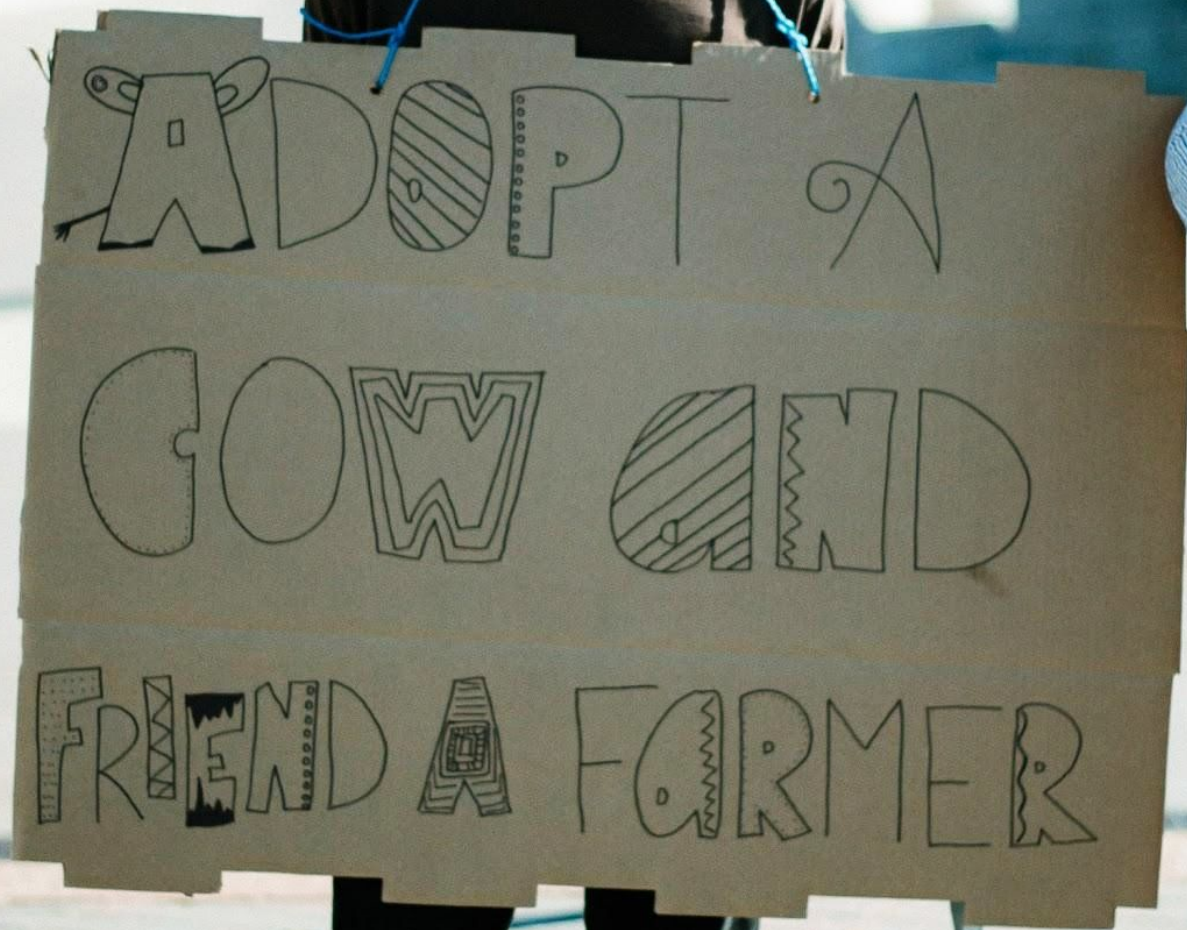 ADOPT A
COW aND
FRIEND A FaRMER